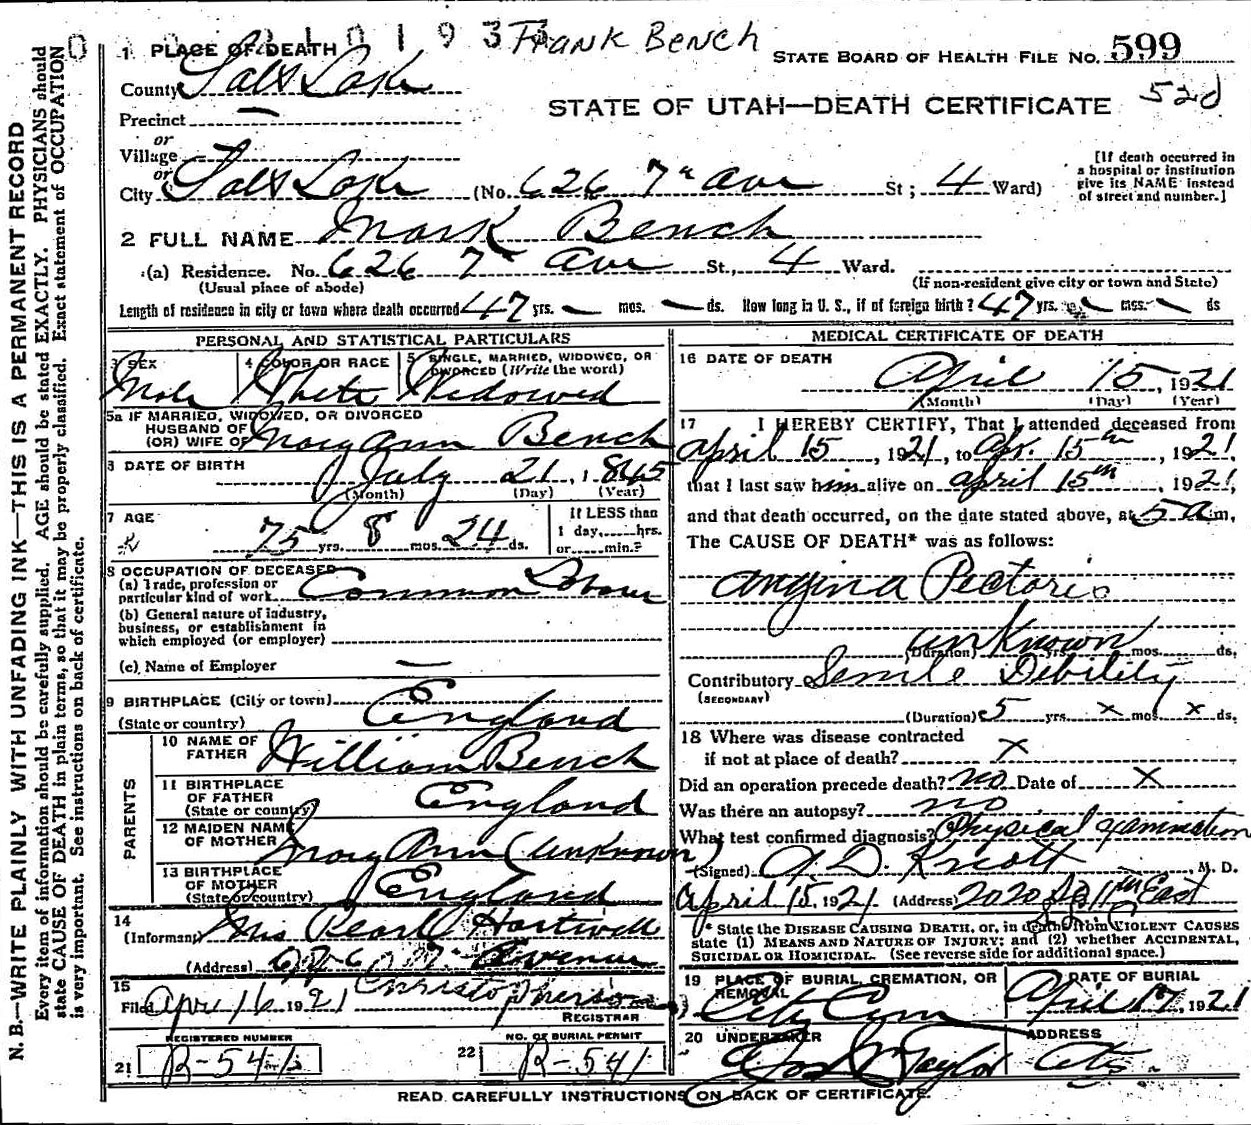 0 1 9 3 Frank Bench
STATE BOARD OF HEALTH FILE NO. 599
52d
STATE OF UTAH—DEATH CERTIFICATE
1 PLACE OF DEATH
County Salt Lake
Precinct —
or
Village
or
City Salt Lake (No. 626 7th Ave St; 4 Ward)
[If death occurred in
a hospital or institution
give its NAME instead
of street and number.]
2 FULL NAME Mark Bench
(a) Residence. No. 626 7th Ave St., 4 Ward.
(Usual place of abode) (If non-resident give city or town and State)
Length of residence in city or town where death occurred 47 yrs. — mos. — ds. How long in U. S., if of foreign birth? 47 yrs. — mos. — ds
PERSONAL AND STATISTICAL PARTICULARS
3 SEX
Male
4 COLOR OR RACE
White
5 SINGLE, MARRIED, WIDOWED, OR
DIVORCED (Write the word)
Widowed
5a IF MARRIED, WIDOWED, OR DIVORCED
HUSBAND OF
(OR) WIFE OF Mary Ann Bench
6 DATE OF BIRTH July 21, 1845
(Month) (Day) (Year)
7 AGE
75 yrs. 8 mos. 24 ds.
If LESS than
1 day,......hrs.
or......min.?
8 OCCUPATION OF DECEASED
(a) Trade, profession or
particular kind of work Common Labour
(b) General nature of industry,
business, or establishment in
which employed (or employer)
(c) Name of Employer —
9 BIRTHPLACE (City or town)
(State or country) England
PARENTS
10 NAME OF
FATHER William Bench
11 BIRTHPLACE
OF FATHER
(State or country) England
12 MAIDEN NAME
OF MOTHER Mary Ann (unknown)
13 BIRTHPLACE
OF MOTHER
(State or country) England
14
(Informant) Mrs Pearl Hartwell
(Address) 626 7th Avenue
15
Filed Apr 16 1921 Christopherson
REGISTRAR
REGISTERED NUMBER
21 R-541
NO. OF BURIAL PERMIT
22 R-541
MEDICAL CERTIFICATE OF DEATH
16 DATE OF DEATH
April 15, 1921
(Month) (Day) (Year)
17 I HEREBY CERTIFY, That I attended deceased from
April 15, 1921, to Apr. 15th, 1921,
that I last saw him alive on April 15th, 1921,
and that death occurred, on the date stated above, at 5 a m.
The CAUSE OF DEATH* was as follows:
Angina Pectoris
unknown
(Duration) yrs. mos. ds.
Contributory Senile Debility
(SECONDARY)
(Duration) 5 yrs. x mos. x ds.
18 Where was disease contracted
if not at place of death? x
Did an operation precede death? no Date of x
Was there an autopsy? no
What test confirmed diagnosis? Physical Examination
(Signed) M. D.
April 15, 1921 (Address) 2020 So 11th East
* State the DISEASE CAUSING DEATH, or, in deaths from VIOLENT CAUSES
state (1) MEANS AND NATURE OF INJURY; and (2) whether ACCIDENTAL,
SUICIDAL OR HOMICIDAL. (See reverse side for additional space.)
19 PLACE OF BURIAL, CREMATION, OR
REMOVAL
City Cem
DATE OF BURIAL
April 17, 1921
20 UNDERTAKER
Jos Wm Taylor
ADDRESS
City.
READ CAREFULLY INSTRUCTIONS ON BACK OF CERTIFICATE.
N. B.—WRITE PLAINLY WITH UNFADING INK—THIS IS A PERMANENT RECORD
Every item of information should be carefully supplied. AGE should be stated EXACTLY. PHYSICIANS should
state CAUSE OF DEATH in plain terms, so that it may be properly classified. Exact statement of OCCUPATION
is very important. See instructions on back of certificate.